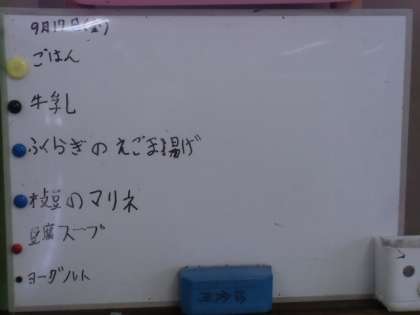 9月17日(金)
ごはん
牛乳
ふくらぎのえごま揚げ
枝豆のマリネ
豆腐スープ
ヨーグルト